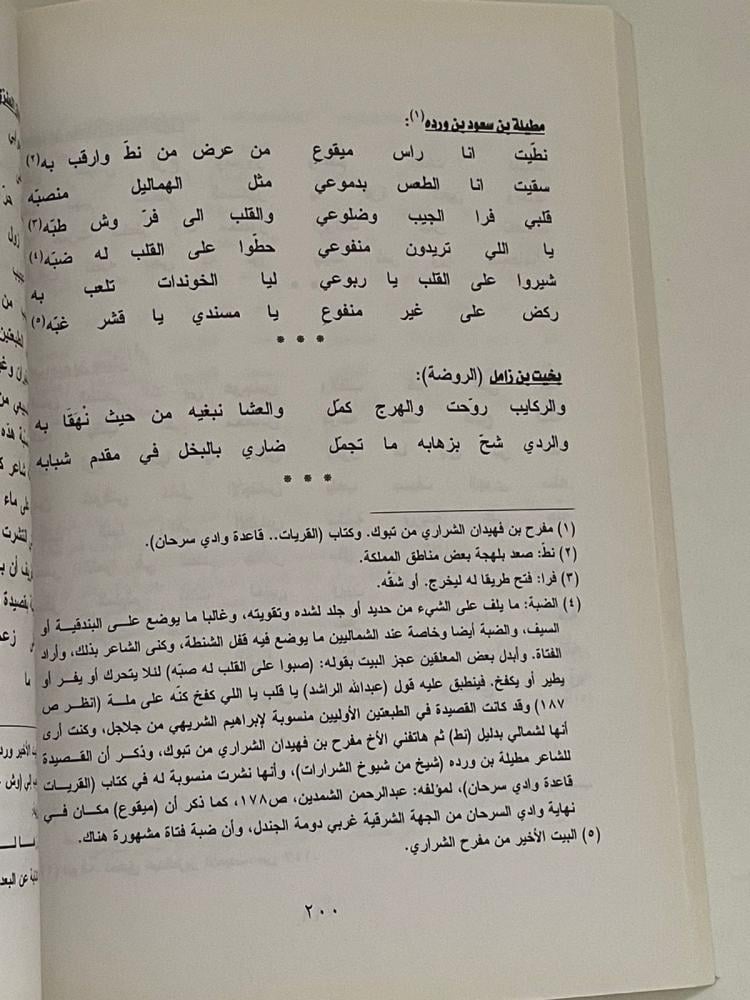 مطيلة بن سعود بن ورده(١):
نطّيت انا راس ميقوع من عرض من نطّ وارقب به(٢)
سقيت انا الطعس بدموعي مثل الهماليل منصبّه
قلبي فرا الجيب وضلوعي والقلب الى فرّ وش طبّه(٣)
يا اللي تريدون منفوعي حطّوا على القلب له ضبّه(٤)
شيروا على القلب يا ربوعي ليا الخوندات تلعب به
ركض على غير منفوع يا مسندي يا قشر غبّه(٥)
* * *
بخيت بن زامل (الروضة):
والركايب روّحت والهرج كمّل والعشا نبغيه من حيث نْهَقَا به
والردي شحّ بزهابه ما تجمّل ضاري بالبخل في مقدم شبابه
* * *
(١) مفرح بن فهيدان الشراري من تبوك. وكتاب (القريات.. قاعدة وادي سرحان).
(٢) نطّ: صعد بلهجة بعض مناطق المملكة.
(٣) فرا: فتح طريقا له ليخرج. أو شقّه.
(٤) الضبة: ما يلف على الشيء من حديد أو جلد لشده وتقويته، وغالبا ما يوضع على البندقية أو
السيف، والضبة أيضا وخاصة عند الشماليين ما يوضع فيه قفل الشنطة، وكنى الشاعر بذلك، وأراد
الفتاة. وأبدل بعض المعلقين عجز البيت بقوله: (صبوا على القلب له صبّه) لئلا يتحرك أو يفر أو
يطير أو يكفخ. فينطبق عليه قول (عبدالله الراشد) يا قلب يا اللي كفخ كنّه على ملة (انظر ص
١٨٧) وقد كانت القصيدة في الطبعتين الأوليين منسوبة لإبراهيم الشريهي من جلاجل، وكنت أرى
أنها لشمالي بدليل (نط) ثم هاتفني الأخ مفرح بن فهيدان الشراري من تبوك، وذكر أن القصيدة
للشاعر مطيلة بن ورده (شيخ من شيوخ الشرارات)، وأنها نشرت منسوبة له في كتاب (القريات
قاعدة وادي سرحان)، لمؤلفه: عبدالرحمن الشمدين، ص١٧٨، كما ذكر أن (ميقوع) مكان في
نهاية وادي السرحان من الجهة الشرقية غربي دومة الجندل، وأن ضبة فتاة مشهورة هناك.
(٥) البيت الأخير من مفرح الشراري.
٢٠٠